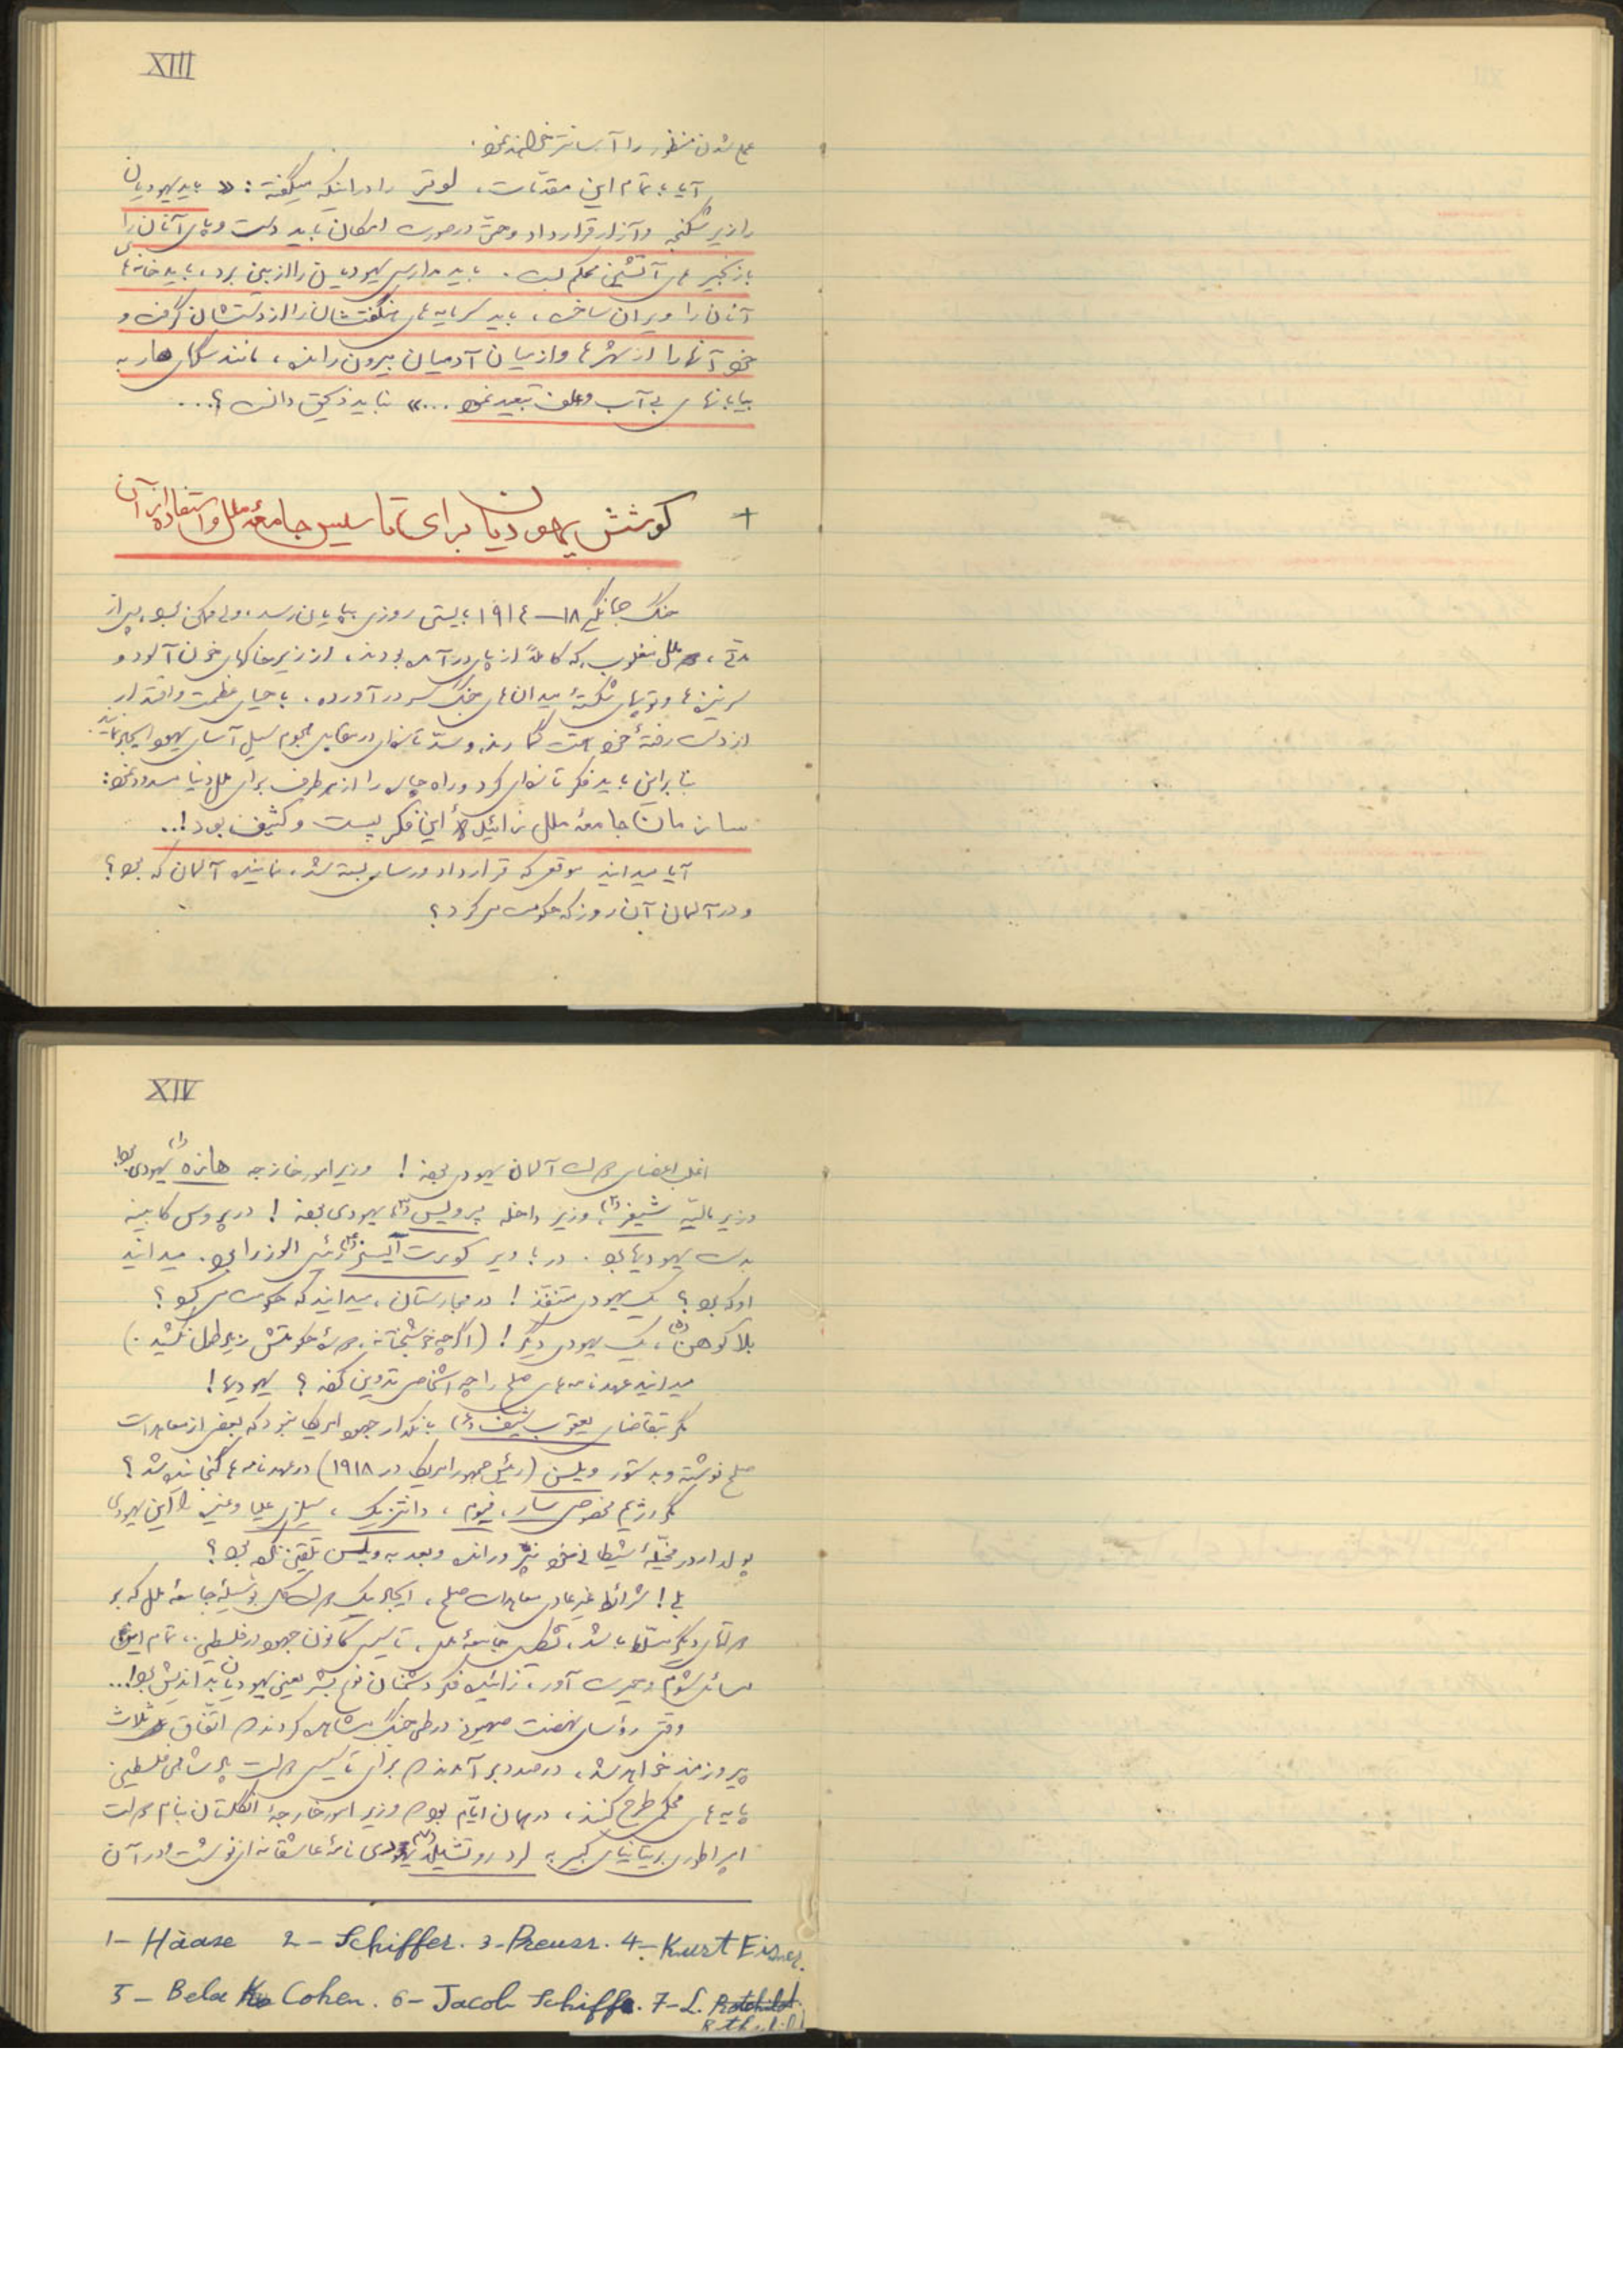 XIII
عملی شدن منظور را آسانتر خواهد نمود.
آیا با تمام این مقدمات، لوتر را در اینکه میگفته: « باید یهودیان
را زیر شکنجه و آزار قرار داد و حتی در صورت امکان باید دست و پای آنان را
با زنجیر های آتشین محکم بست. باید مدارس یهودیان را از بین برد، باید خانه های
آنان را ویران ساخت، باید سرمایه های هنگفتشان را از دستشان گرفت و
خود آنها را از شهرها و از میان آدمیان بیرون رانده، مانند سگهای هار به
بیابانهای بی آب و علف تبعید نمود ...» نباید ذیحق دانست؟...
+ کوشش یهودیان برای تاسیس جامعهٔ ملل و استفاده از آن
جنگ جهانگیر ۱۸–۱۹۱٤ بایستی روزی بپایان رسد، ولی ممکن بود پس از
مدتی، ملل مغلوب که کاملاً از پای در آمده بودند، از زیر خاکهای خون آلود و
سرنیزه ها و توپهای شکستهٔ میدان های جنگ سر در آورده، باحیای عظمت و اقتدار
از دست رفتهٔ خود همت گمارند و سدّ تازه‌ای در مقابل هجوم سیل آسای یهود ایجاد نمایند.
بنابراین باید فکر تازه‌ای کرد و راه چاره را از هر طرف برای ملل دنیا مسدود نمود:
سازمان جامعهٔ ملل زائیدهٔ این فکر پست و کثیف بود!..
آیا میدانید موقعی که قرارداد ورسای بسته شد، نمایندهٔ آلمان که بود؟
و در آلمان آن روز که حکومت می کرد؟
XIV
اغلب اعضای دولت آلمان یهودی بودند! وزیر امور خارجه هازه (۱) یهودی بود!
وزیر مالیّه شیفر (۲)، وزیر داخله پرویس (۳) یهودی بودند! در پروس کابینه
بدست یهودیها بود. در باویر کورت آیسنر (۴) رئیس الوزرا بود. میدانید
او که بود؟ یک یهودی متنفذ! در مجارستان، میدانید که حکومت می کرد؟
بلا کوهن (۵)، یک یهودی دیگر! (اگرچه خوشبختانه دورهٔ حکومتش زیاد طول نکشید.)
میدانید عهدنامه های صلح را چه اشخاصی تدوین کردند؟ یهودیها!
مگر بتقاضای یعقوب شیف (۶) بانکدار یهود امریکا نبود که بعضی از معاهدات
صلح نوشته و بدستور ویلسن (رئیس جمهور امریکا در ۱۹۱۸) در عهدنامه ها گنجانده شد؟
مگر رژیم مخصوص سار، فیوم، دانتزیگ، سیلزی علیا و غیره را این یهودی
پولدار در مخیلهٔ شیطانی خود نپروراند و بعد به ویلسن تلقین نکرده بود؟
بلی! شرائط غیر عادی معاهدات صلح، ایجاد یک دولت کل بوسیلهٔ جامعهٔ ملل که بر
دولتهای دیگر مسلط باشد، تشکیل جامعهٔ ملل، تاسیس کانون یهود در فلسطین، تمام این
مسائل شوم و حیرت آور، زائیدهٔ فکر دشمنان نوع بشر یعنی یهودیان بد اندیش بود!...
وقتی رؤسای نهضت صهیون در طی جنگ مشاهده کردند که اتفاق ثلاث
پیروزمند خواهد شد، درصدد بر آمدند که برای تاسیس دولت پادشاهی فلسطین
پایه های محکمی طرح کنند، در همان ایّام بود که وزیر امور خارجهٔ انگلستان بنام دولت
امپراطوری بریتانیای کبیر به لرد روتشیلد (۷) یهودی نامهٔ عاشقانه‌ای نوشت و در آن
1– Haase 2– Schiffer. 3–Preuss. 4– Kurt Eisner.
5– Bela Cohen. 6– Jacob Schiff. 7–L. Rotchild. Rothschild